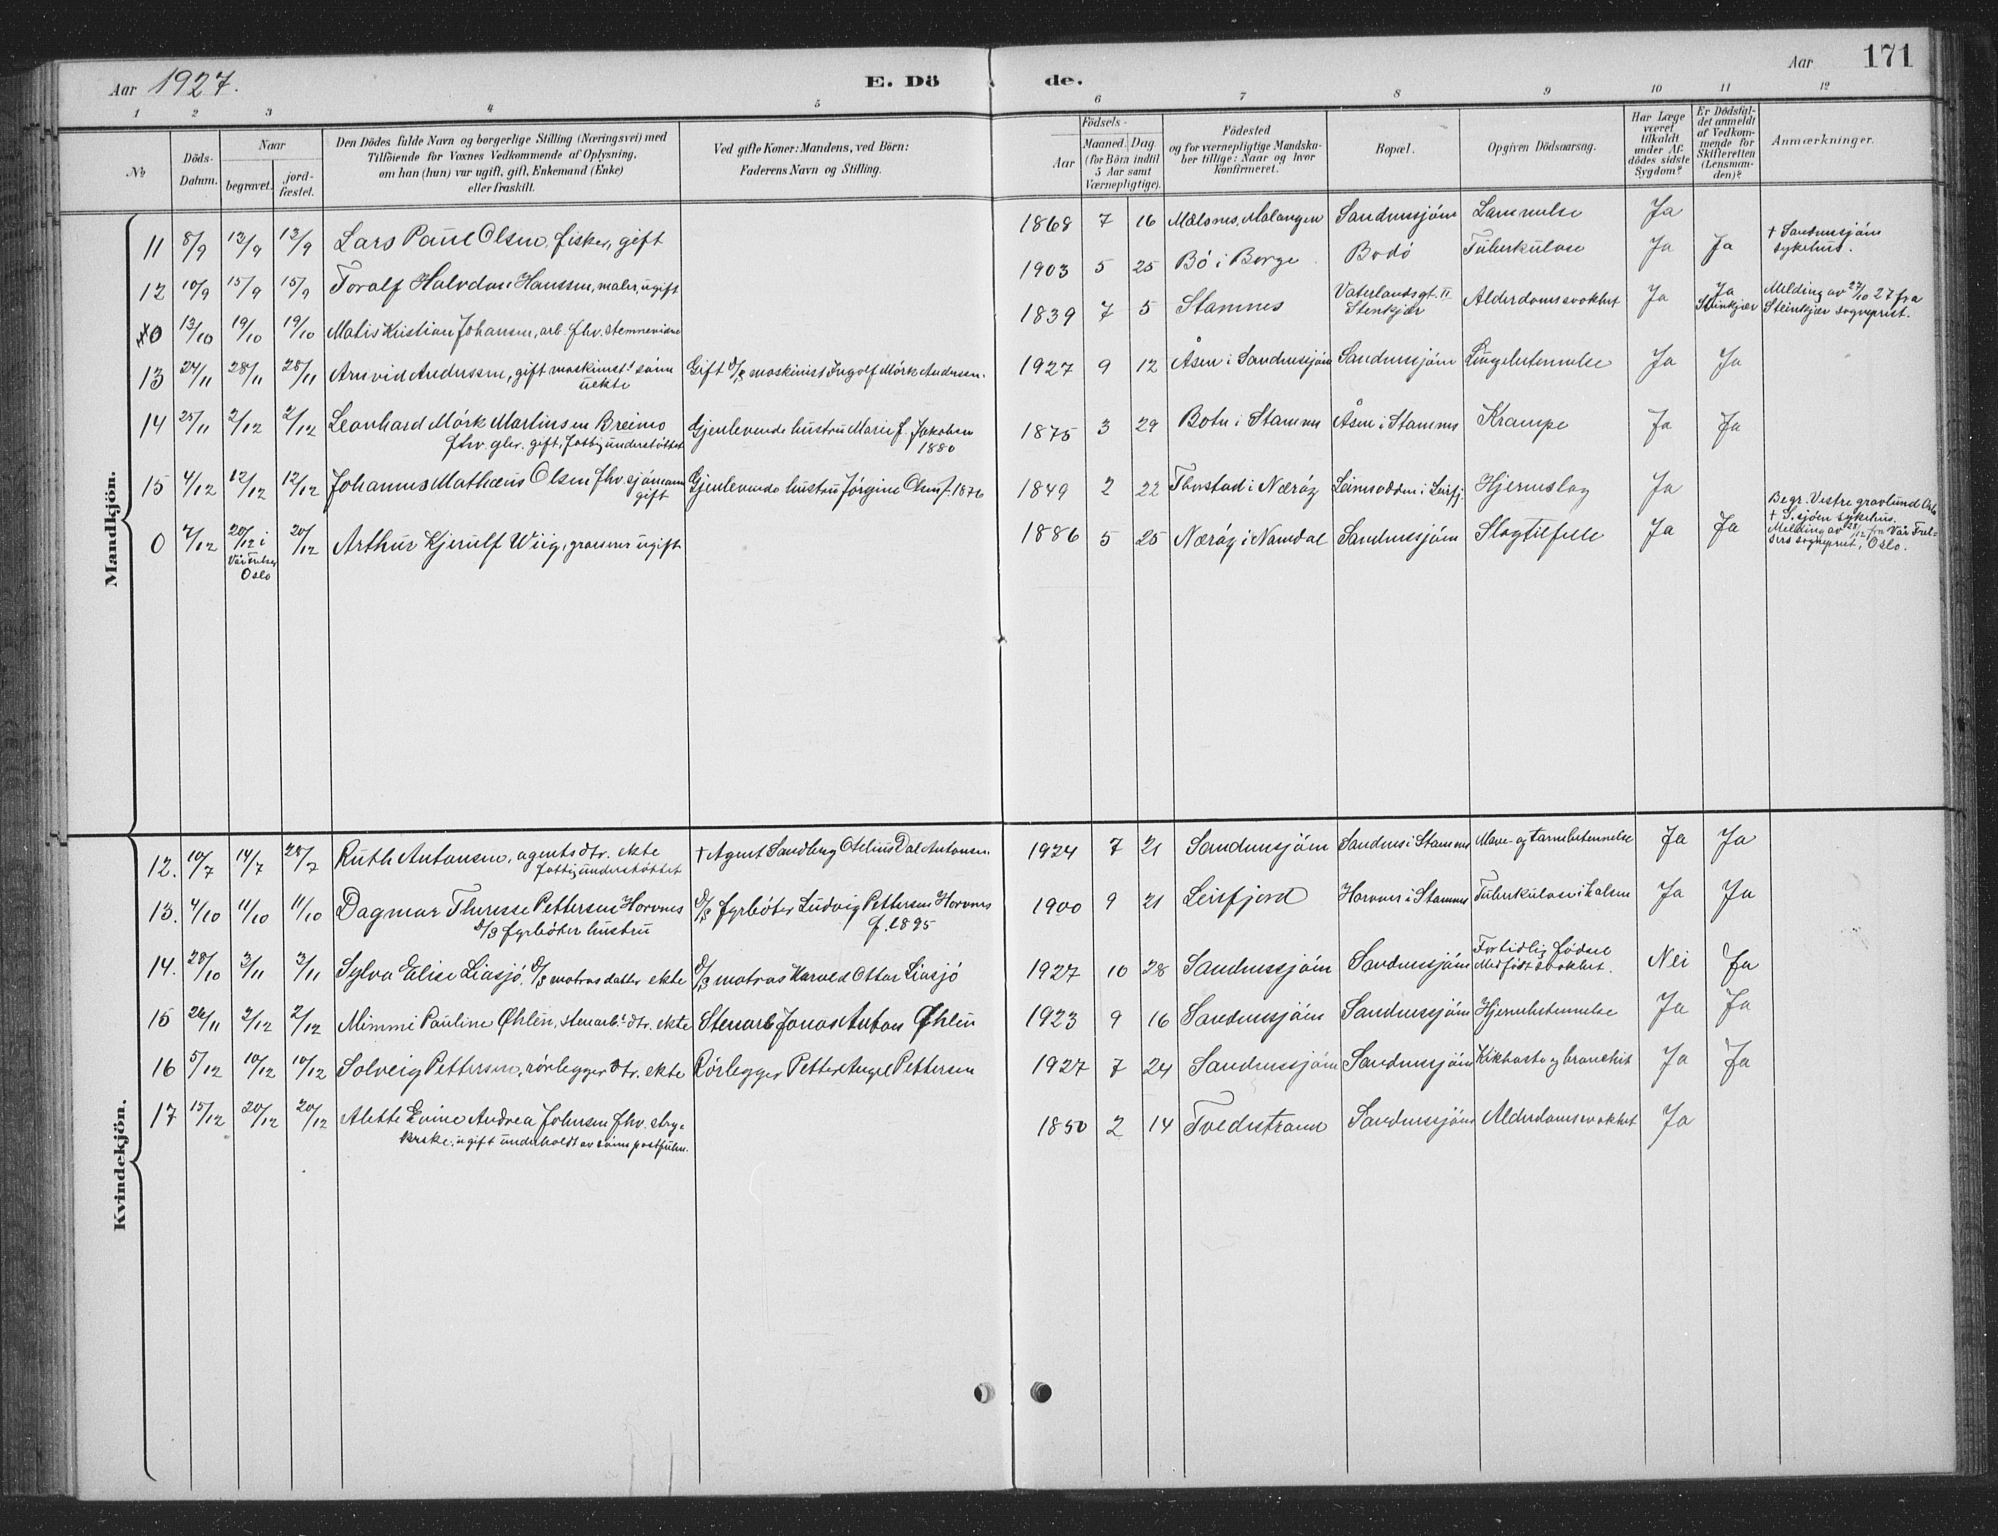 Aar 1927.
E. Dö
de.
Aar
171
1 2 3 4 5 6 7 8 9 10 11 12
№
Döds-
Datum.
Naar
begravet.
jord-
fæstet.
Den Dödes fulde Navn og borgerlige Stilling (Næringsvei) med
Tilföiende for Voxnes Vedkommende af Oplysning,
om han (hun) var ugift, gift, Enkemand (Enke)
eller fraskilt.
Ved gifte Koner: Mandens, ved Börn:
Faderens Navn og Stilling.
Födsels-
Aar
Maaned. Dag.
(for Börn indtil
5 Aar samt
Værnepligtige).
Födested
og for værnepligtige Mandska-
ber tillige: Naar og hvor
Konfirmeret.
Bopæl.
Opgiven Dödsaarsag.
Har Læge
været
tilkaldt
under Af-
dödes sidste
Sygdom?
Er Dödsfal-
det anmeldt
af Vedkom-
mende for
Skifteretten
(Lensman-
den)?
Anmærkninger.
Mandkjön.
11 8/9 13/9 13/9 Lars Paul Olsen, fisker, gift 1868 7 16 Målsnes, Malangen Sandnessjöen Lammelse Ja
† Sandnessjöen
sykehus.
12 10/9 15/9 15/9 Toralf Halvdan Hanssen, maler, ugift 1903 5 25 Bö i Borge Bodö Tuberkulose Ja Ja
0 13/10 19/10 19/10 Matis Kristian Johansen, arb. fhv. stemnevidne 1839 7 5 Stamnes Vaterlandsgt. 11
Stenkjær Alderdomssvakhet Ja Ja
Steinkjær Melding av 27/10 27 fra
Steinkjær sogneprest.
13 24/11 28/11 28/11 Arnvid Anderssen, gift maskinist's sönn
uekte Gift maskinist Ingolf Mörk Andersen. 1927 9 12 Åsen i Sandnessjöen Sandnessjöen Lungebetennelse Ja Ja
14 25/11 2/12 2/12 Leonhard Mörk Martinsen Breimo
fhv. gbr. gift, fattigunderstöttet Gjenlevende hustru Marie f. Jakobsen
1880 1875 3 29 Botn i Stamnes Åsen i Stamnes Krampe Ja Ja
15 4/12 12/12 12/12 Johannes Mathæus Olsen fhv. sjömann
gift Gjenlevende hustru Jörgine Olsen f. 1876 1849 2 22 Thorstad i Næröy Leinesodden i Leirfj. Hjerneslag Ja
0 7/12 20/12 i
Vår Frelsers
Oslo 20/12 Arthur Kjerulf Wiig, grosserer ugift 1886 5 25 Næröy i Namdal Sandnessjöen Slagtilfelle Ja Ja
Begr. Vestre gravlund Oslo
† S.sjöen sykehus.
Melding av 28/12 fra Vår Frel-
sers sogneprest, Oslo.
Kvindekjön.
12. 10/7 14/7 28/7 Ruth Antonsen, agents dtr. ekte
fattigunderstöttet † Agent Sandberg Otelius Dal Antonsen. 1924 7 21 Sandnessjöen Sandnes i Stamnes Mave- og tarmbetennelse Ja Ja
13. 4/10 11/10 11/10 Dagmar Therese Pettersen Horvnes
D/S fyrböter hustru D/S fyrböter Ludvig Pettersen Horvnes
f. 1895 1900 9 21 Leirfjord Horvnes i Stamnes Tuberkulose i halsen Ja Ja
14. 28/10 3/11 3/11 Sylva Elise Liasjö. D/S matros datter ekte D/S matros Harald Ottar Liasjö 1927 10 28 Sandnessjöen Sandnessjöen Fortidlig födsel
Medfödt svakhet. Nei Ja
15 26/11 2/12 2/12 Mimmi Pauline Øhlen, stenarb.s dtr. ekte Stenarb. Jonas Anton Øhlen 1923 9 16 Sandnessjöen Sandnessjöen Hjernebetennelse Ja Ja
16 5/12 10/12 10/12 Solveig Pettersen, rörlegger dtr. ekte Rörlegger Petter Angel Pettersen 1927 7 24 Sandnessjöen Sandnessjöen Kikhoste og bronchit Ja Ja
17 15/12 20/12 20/12 Alette Evine Andrea Johnsen fhv. stry-
kerske, ugift underholdt av sönn postfullm. 1850 2 14 Tvedestrand Sandnessjöen Alderdomssvakhet Ja